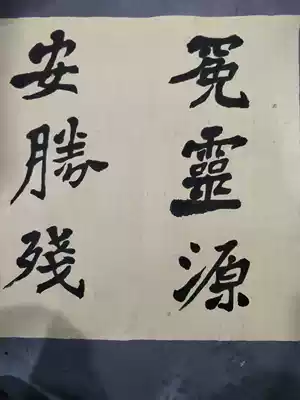 靈源
安勝殘